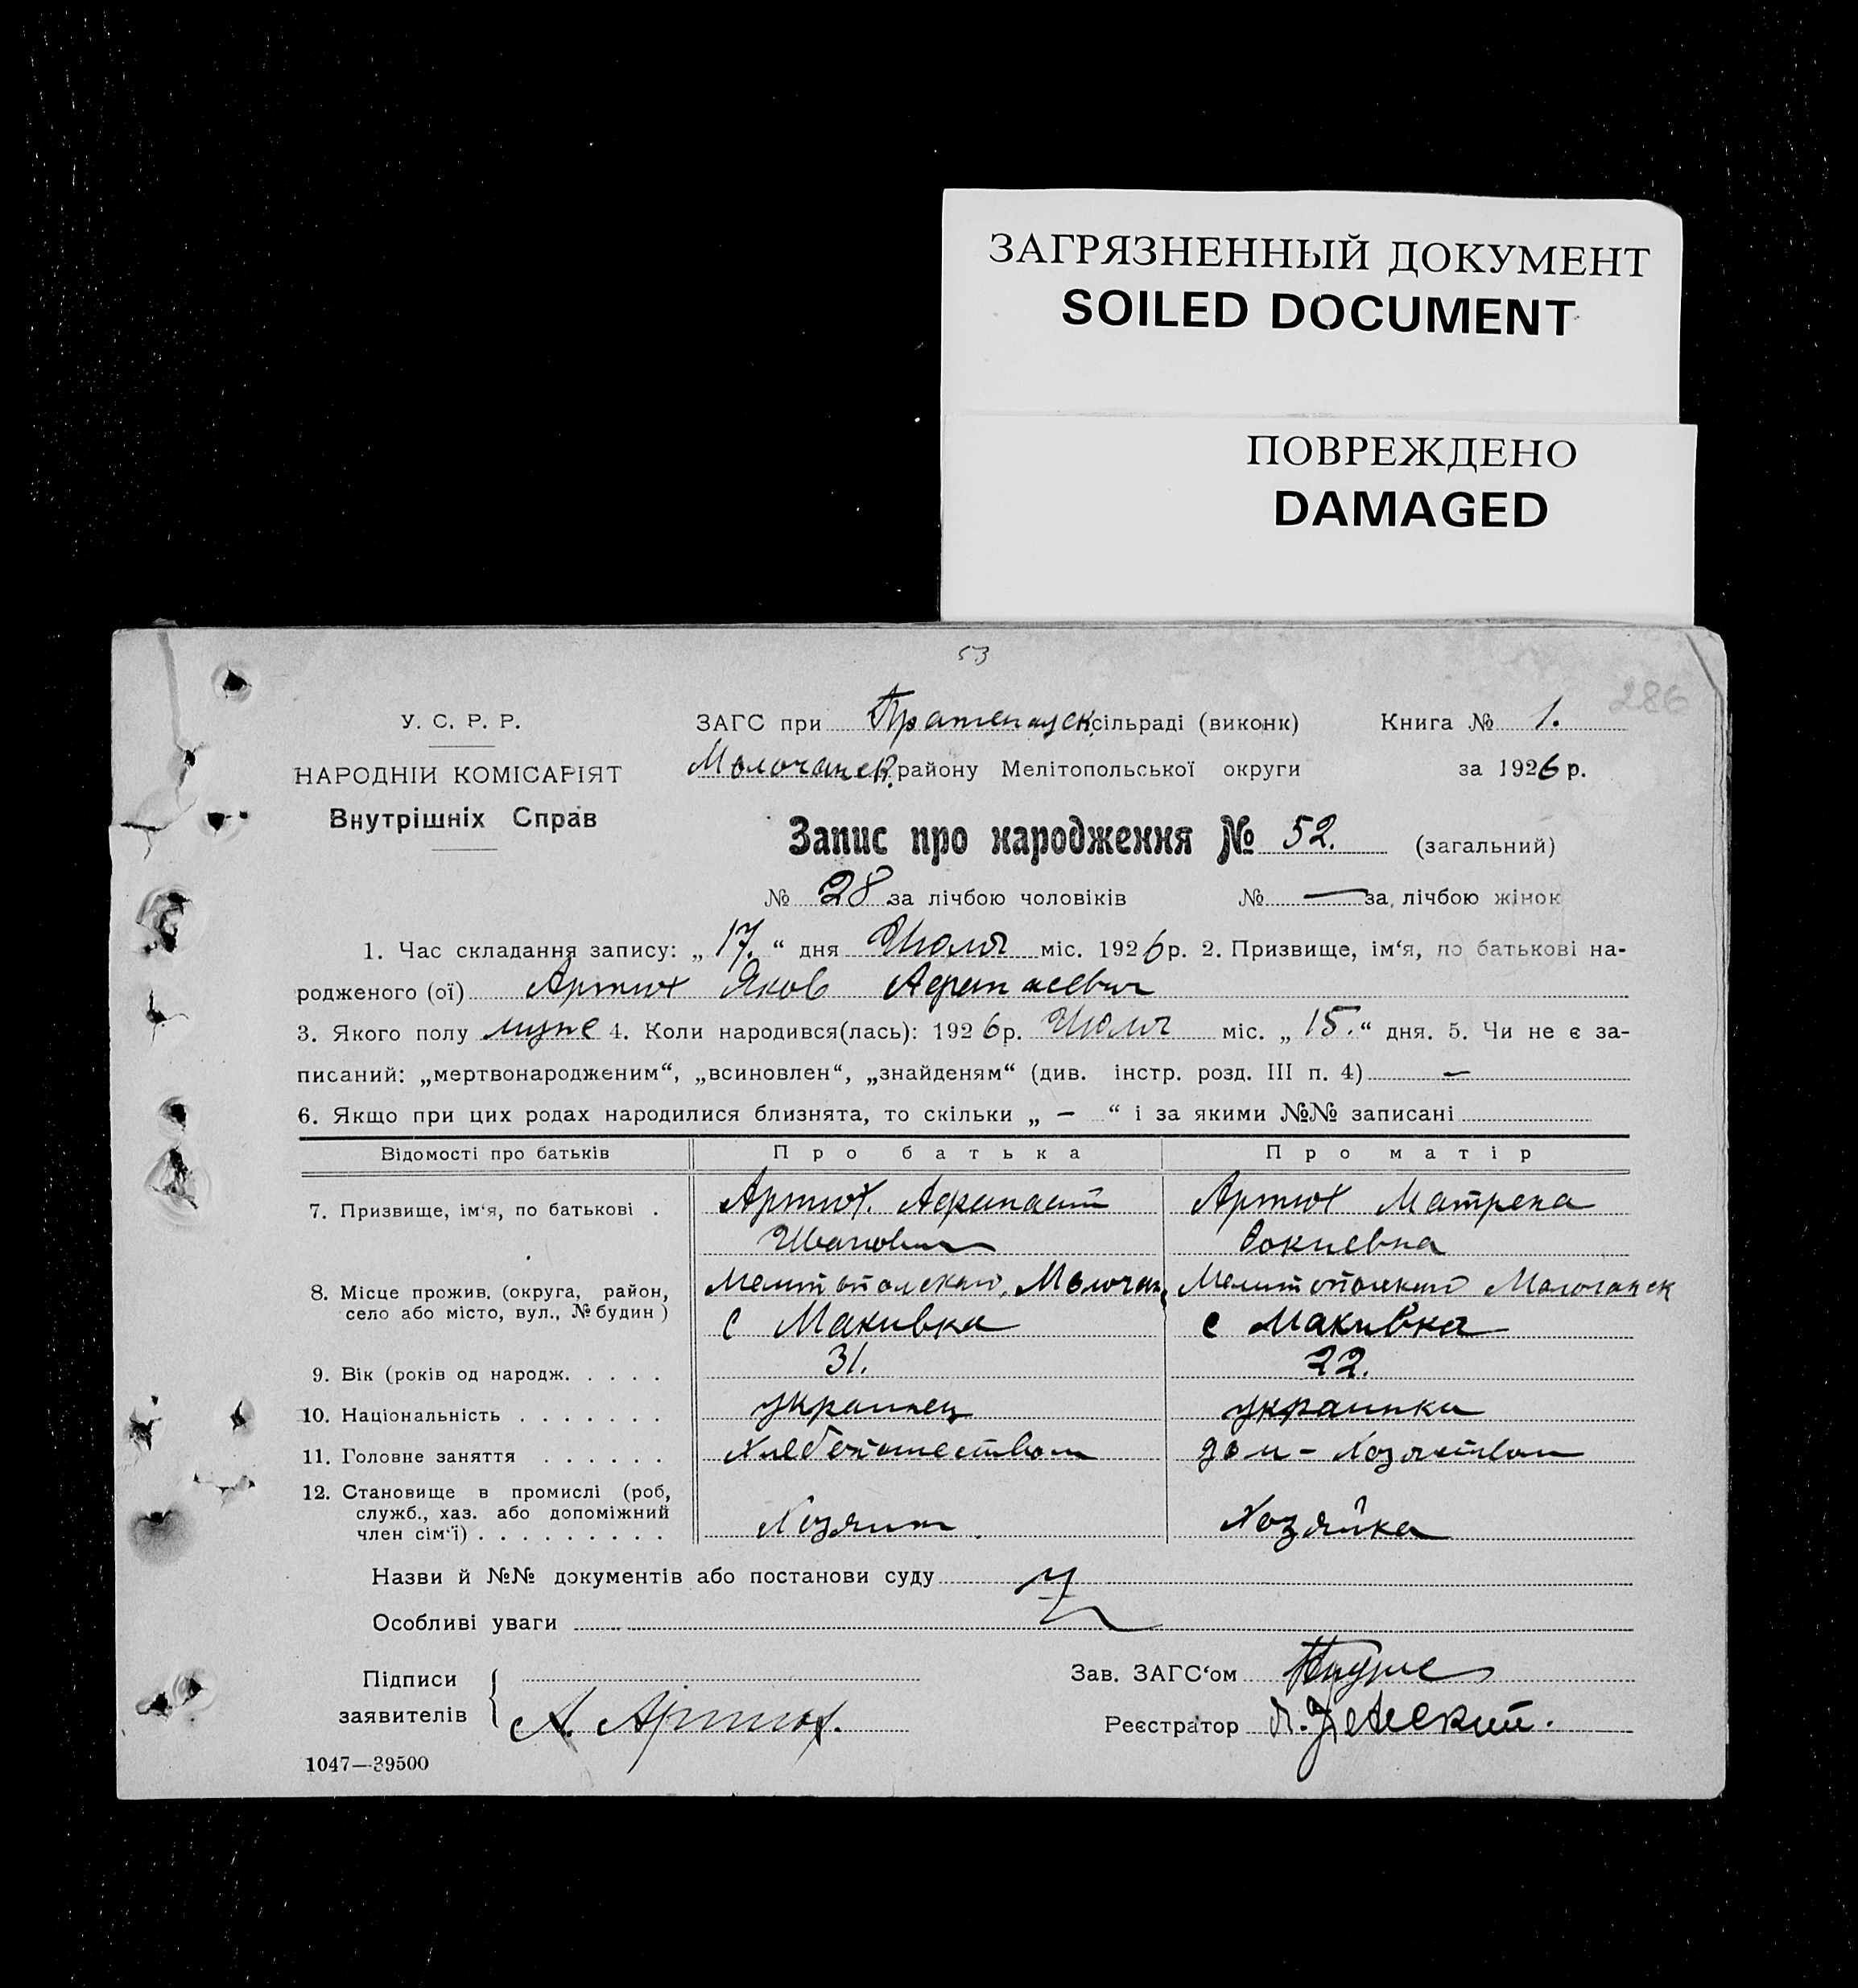 ЗАГРЯЗНЕННЫЙ ДОКУМЕНТ
SOILED DOCUMENT
ПОВРЕЖДЕНО
DAMAGED
53
286
У. С. Р. Р.
НАРОДНІЙ КОМІСАРІЯТ
Внутрішніх Справ
ЗАГС при сільраді (виконк) Книга № 1.
Молочанск. району Мелітопольської округи за 1926 р.
Запис про народження № 52. (загальний)
№ 28 за лічбою чоловіків № — за лічбою жінок
1. Час складання запису: „17.“ дня Июля міс. 1926 р. 2. Призвище, ім‘я, по батькові на-
родженого (ої) Артюх Яков Афанасевич
3. Якого полу муже 4. Коли народився(лась): 1926 р. Июля міс. „15.“ дня. 5. Чи не є за-
писаний: „мертвонародженим“, „всиновлен“, „знайденям“ (див. інстр. розд. III п. 4) —
6. Якщо при цих родах народилися близнята, то скільки „ — “ і за якими №№ записані
Відомості про батьків Про батька Про матір
7. Призвище, ім‘я, по батькові . Артюх. Афанасий Артюх Матрена
Иванович
8. Місце прожив. (округа, район, Мелитопольский, Молочан, Мелитопольский Молочанск
село або місто, вул., № будин) с Маковка с Маковка
9. Вік (років од народж. . . . . 31. 22.
10. Національність . . . . . . . украинец украинка
11. Головне заняття . . . . . . Хлебопашеством дом - Хозяйством
12. Становище в промислі (роб,
служб., хаз. або допоміжний
член сім‘ї) . . . . . . . . . Хозяин. Хозяйка
Назви й №№ документів або постанови суду
Особливі уваги
Підписи
заявителів А. Артюх.
Зав. ЗАГС‘ом
Реєстратор
1047—39500